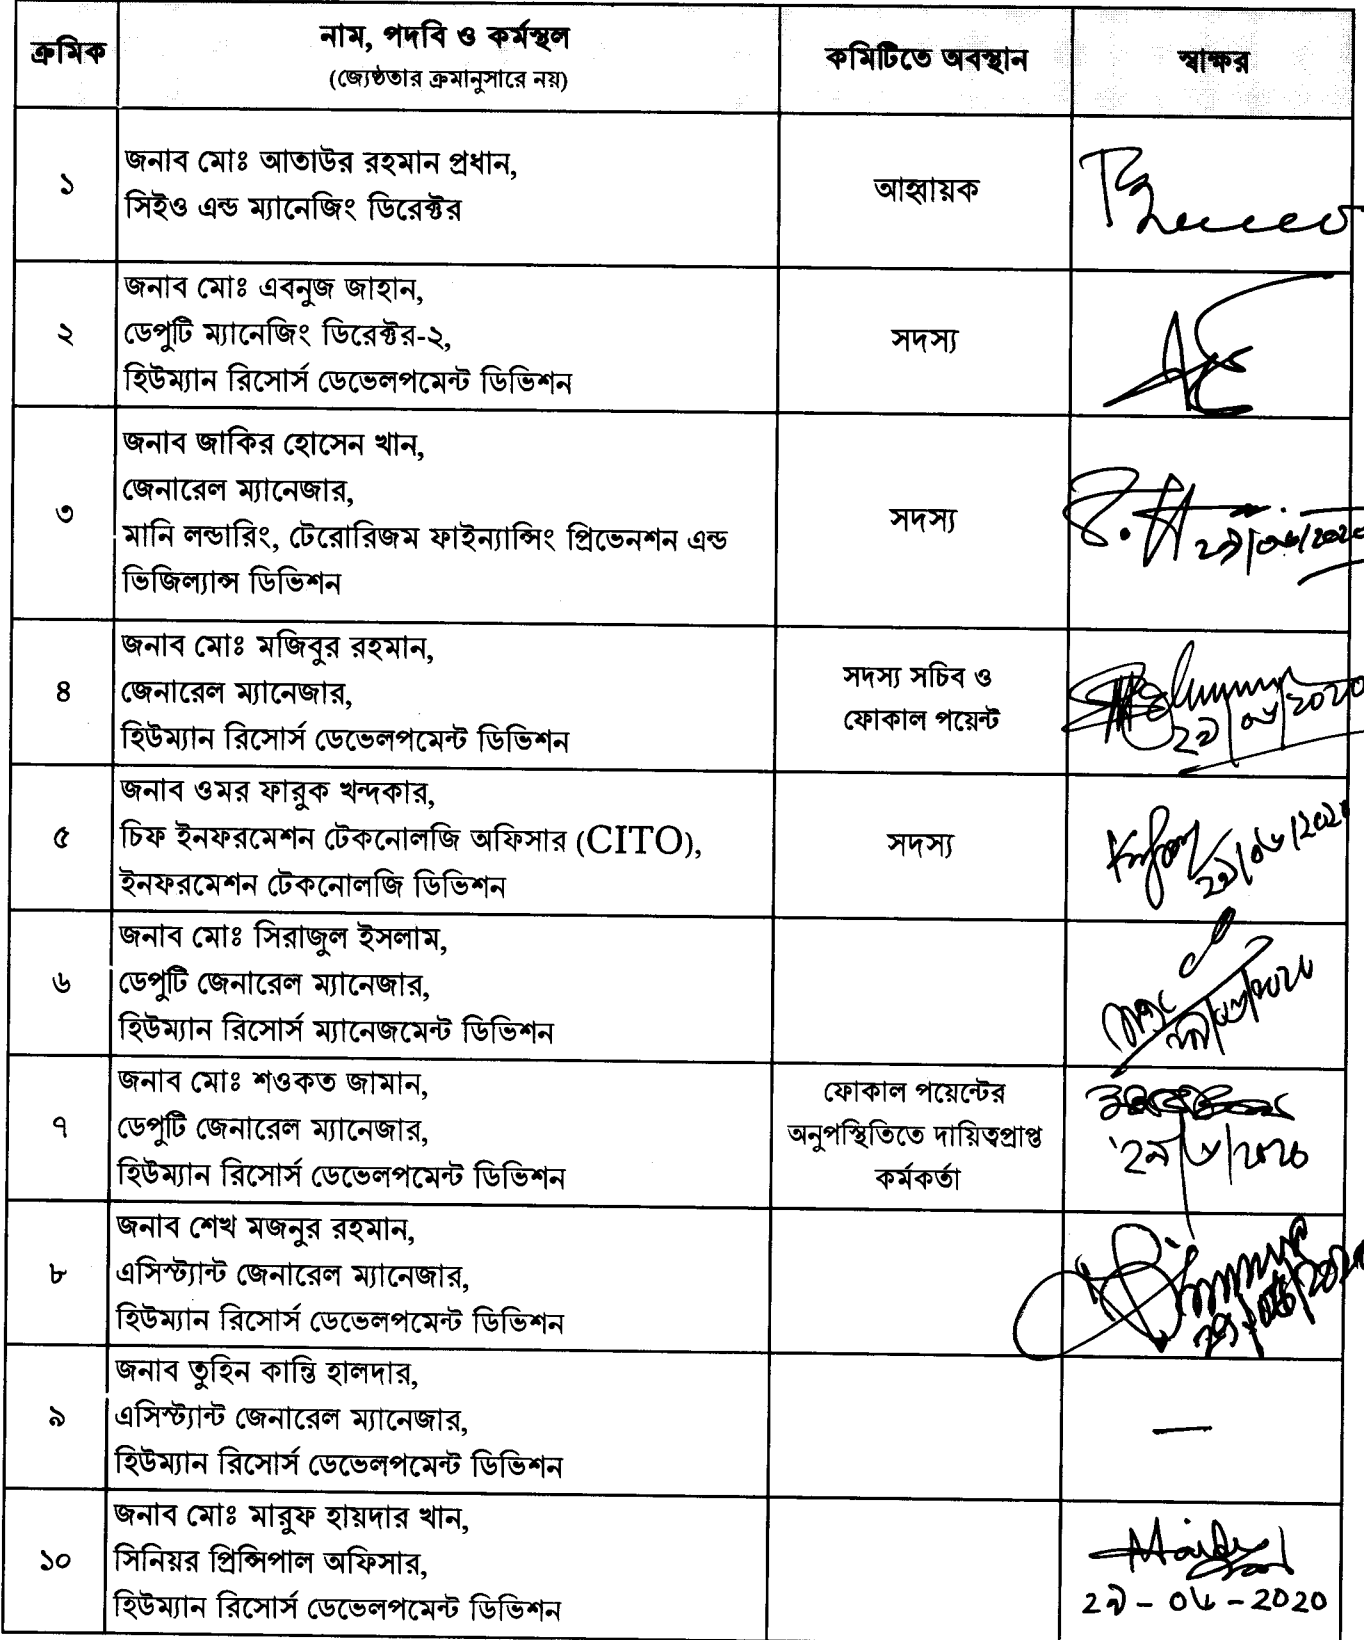 ক্রমিক
নাম, পদবি ও কর্মস্থল
(জ্যেষ্ঠতার ক্রমানুসারে নয়)
কমিটিতে অবস্থান
স্বাক্ষর
১
জনাব মোঃ আতাউর রহমান প্রধান,
সিইও এন্ড ম্যানেজিং ডিরেক্টর
আহ্বায়ক
২
জনাব মোঃ এবনুজ জাহান,
ডেপুটি ম্যানেজিং ডিরেক্টর-২,
হিউম্যান রিসোর্স ডেভেলপমেন্ট ডিভিশন
সদস্য
৩
জনাব জাকির হোসেন খান,
জেনারেল ম্যানেজার,
মানি লন্ডারিং, টেরোরিজম ফাইন্যান্সিং প্রিভেনশন এন্ড
ভিজিল্যান্স ডিভিশন
সদস্য
২৯/০৬/২০২০
৪
জনাব মোঃ মজিবুর রহমান,
জেনারেল ম্যানেজার,
হিউম্যান রিসোর্স ডেভেলপমেন্ট ডিভিশন
সদস্য সচিব ও
ফোকাল পয়েন্ট
২৯/০৬/২০২০
৫
জনাব ওমর ফারুক খন্দকার,
চিফ ইনফরমেশন টেকনোলজি অফিসার (CITO),
ইনফরমেশন টেকনোলজি ডিভিশন
সদস্য
২৯/০৬/২০২০
৬
জনাব মোঃ সিরাজুল ইসলাম,
ডেপুটি জেনারেল ম্যানেজার,
হিউম্যান রিসোর্স ম্যানেজমেন্ট ডিভিশন
৭
জনাব মোঃ শওকত জামান,
ডেপুটি জেনারেল ম্যানেজার,
হিউম্যান রিসোর্স ডেভেলপমেন্ট ডিভিশন
ফোকাল পয়েন্টের
অনুপস্থিতিতে দায়িত্বপ্রাপ্ত
কর্মকর্তা
২৯/৬/২০২০
৮
জনাব শেখ মজনুর রহমান,
এসিস্ট্যান্ট জেনারেল ম্যানেজার,
হিউম্যান রিসোর্স ডেভেলপমেন্ট ডিভিশন
৯
জনাব তুহিন কান্তি হালদার,
এসিস্ট্যান্ট জেনারেল ম্যানেজার,
হিউম্যান রিসোর্স ডেভেলপমেন্ট ডিভিশন
—
১০
জনাব মোঃ মারুফ হায়দার খান,
সিনিয়র প্রিন্সিপাল অফিসার,
হিউম্যান রিসোর্স ডেভেলপমেন্ট ডিভিশন
২৯-০৬-২০২০